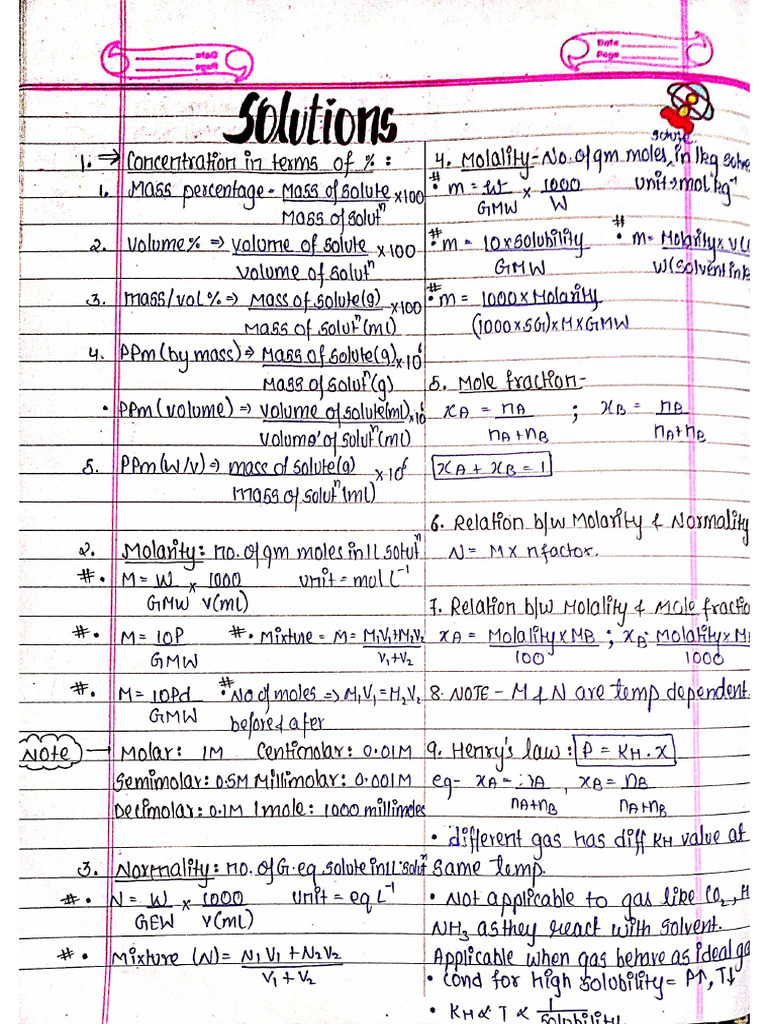 Date
Page
Date
Page
Solutions
1. ⇒ Concentration in terms of % :
1. Mass percentage - Mass of solute / Mass of solutⁿ ×100
2. Volume % ⇒ volume of solute / Volume of solutⁿ ×100
3. mass/vol % ⇒ Mass of solute(g) / Mass of solutⁿ(ml) ×100
4. PPm (by mass) ⇒ Mass of solute(g) / Mass of solutⁿ(g) ×10⁶
• PPm (volume) ⇒ Volume of solute(ml) / Volume of solutⁿ(ml) ×10⁶
5. PPm (w/v) ⇒ mass of solute(g) / mass of solutⁿ(ml) ×10⁶
2. Molarity: no. of gm moles in 1L solutⁿ
#• M = W / GMW × 1000 / V(ml) unit = mol L⁻¹
#• M = 10P / GMW #• Mixture = M = M₁V₁+M₂V₂ / V₁+V₂
#• M = 10Pd / GMW #• No of moles ⇒ M₁V₁ = M₂V₂
before & afer
Note → Molar: 1M Centimolar: 0.01M
Semimolar: 0.5M Millimolar: 0.001M
Decimolar: 0.1M 1mole: 1000 millimoles
3. Normality: no. of G.eq solute in 1L solutⁿ
#• N = W / GEW × 1000 / V(ml) unit = eq L⁻¹
#• Mixture (N) = N₁V₁ + N₂V₂ / V₁ + V₂
4. Molality - No. of gm moles in 1kg
#• m = W / GMW × 1000 / W unit → mol kg⁻¹
#• m = 10 × solubility / GMW #• m = Molarity × V( / W(solvent in k
#• m = 1000 × Molarity / (1000 × SG) × M × GMW
5. Mole fraction -
xA = nA / nA+nB ; xB = nB / nA+nB
xA + xB = 1
6. Relation b/w Molarity & Normality
N = M × n factor.
7. Relation b/w Molality & Mole fractio
xA = Molality × MB / 100 ; xB = Molality × M / 1000
8. NOTE - M & N are temp dependent.
9. Henry's law : P = KH . x
eg - xA = nA / nA+nB , xB = nB / nA+nB
• different gas has diff KH value at
same temp.
• Not applicable to gas like CO₂, H
NH₃ as they react with solvent.
Applicable when gas behave as ideal ga
• Cond for high solubility = P↑, T↓
• KH ∝ T ∝ 1 / solubility